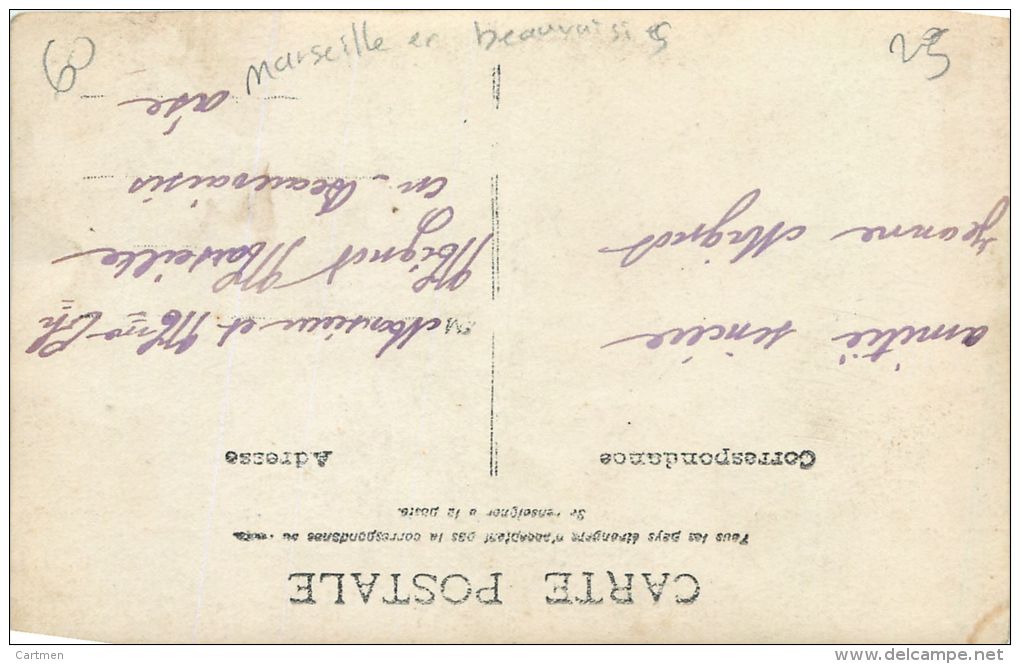 CARTE POSTALE
Tous les pays étrangers n'acceptent pas la correspondance au
Se renseigner à la poste.
Correspondance
Adresse
amitié sincère
Jeanne Mignot
Monsieur et Mme Ch
Mignot Marseille
en Beauvaisis
oise
Marseille en beauvaisis
60
Cartmen
delcampe.net